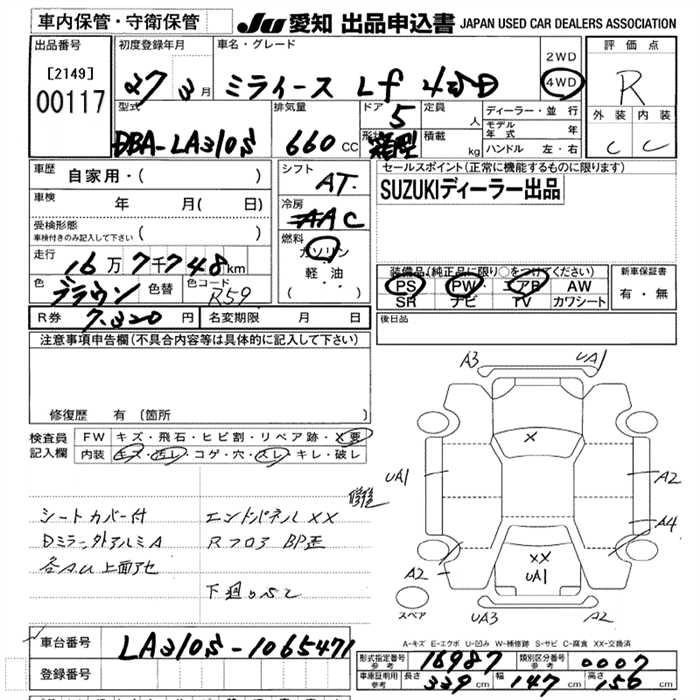 車内保管・守衛保管
Ju 愛知 出品申込書 JAPAN USED CAR DEALERS ASSOCIATION
出品番号
[2149]
00117
初度登録年月
27 3月
車名・グレード
ミライース Lf 4WD
2WD
4WD
評価点
R
外装 内装
C C
型式
DBA-LA310S
排気量
660 CC
ドア
5
形状
箱型
定員
人
積載
kg
ディーラー・並行
モデル年式 年
ハンドル 左・右
車歴
自家用・( )
車検
年 月( 日)
受検形態
車検付きのみ記入して下さい ( )
走行
16万7千748km
色
ブラウン
色替
色コード
R59
R券 7.320円
名変期限 月 日
シフト
AT
冷房
AAC
燃料
ガソリン
軽・油
( ・ )
セールスポイント(正常に機能するものに限ります)
SUZUKIディーラー出品
装備品(純正品に限り○をつけてください)
PS PW エアB AW
SR ナビ TV カワシート
新車保証書
有・無
後日品
注意事項申告欄(不具合内容等は具体的に記入して下さい)
修復歴 有 (箇所 )
検査員記入欄
FW キズ・飛石・ヒビ割・リペア跡・X要
内装 キズ・汚レ・コゲ・穴・スレ・キレ・破レ
シートカバー付
Dミラー外アルミA
各A.U 上面アセ
エンドパネルXX
Rフロア BP歪
修復
A3 UA1
X
UA1
A2
A4
A2
XX
UA1
スペア
UA3
A2
A-キズ E-エクボ U-凹み W-補修跡 S-サビ C-腐食 XX-交換済
車台番号
LA310S-1065471
登録番号
形式指定番号 参考
16987
類別区分番号 参考
0007
車庫証明用 参考
長さ 339cm
幅 147cm
高さ 156cm